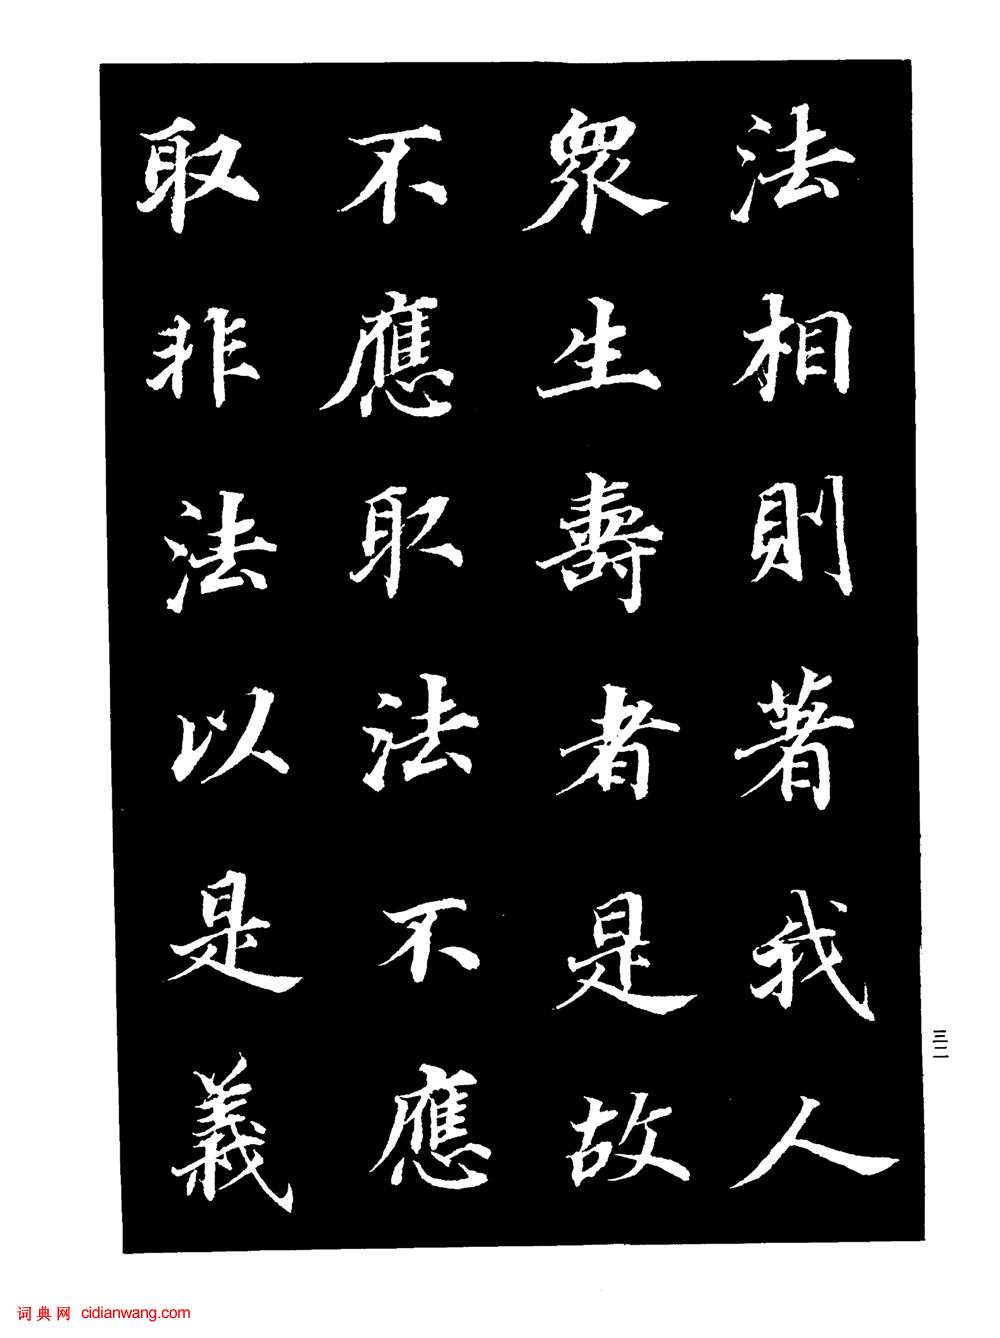 法相則著我人
衆生壽者是故
不應取法不應
取非法以是義
三二
词典网 cidianwang.com